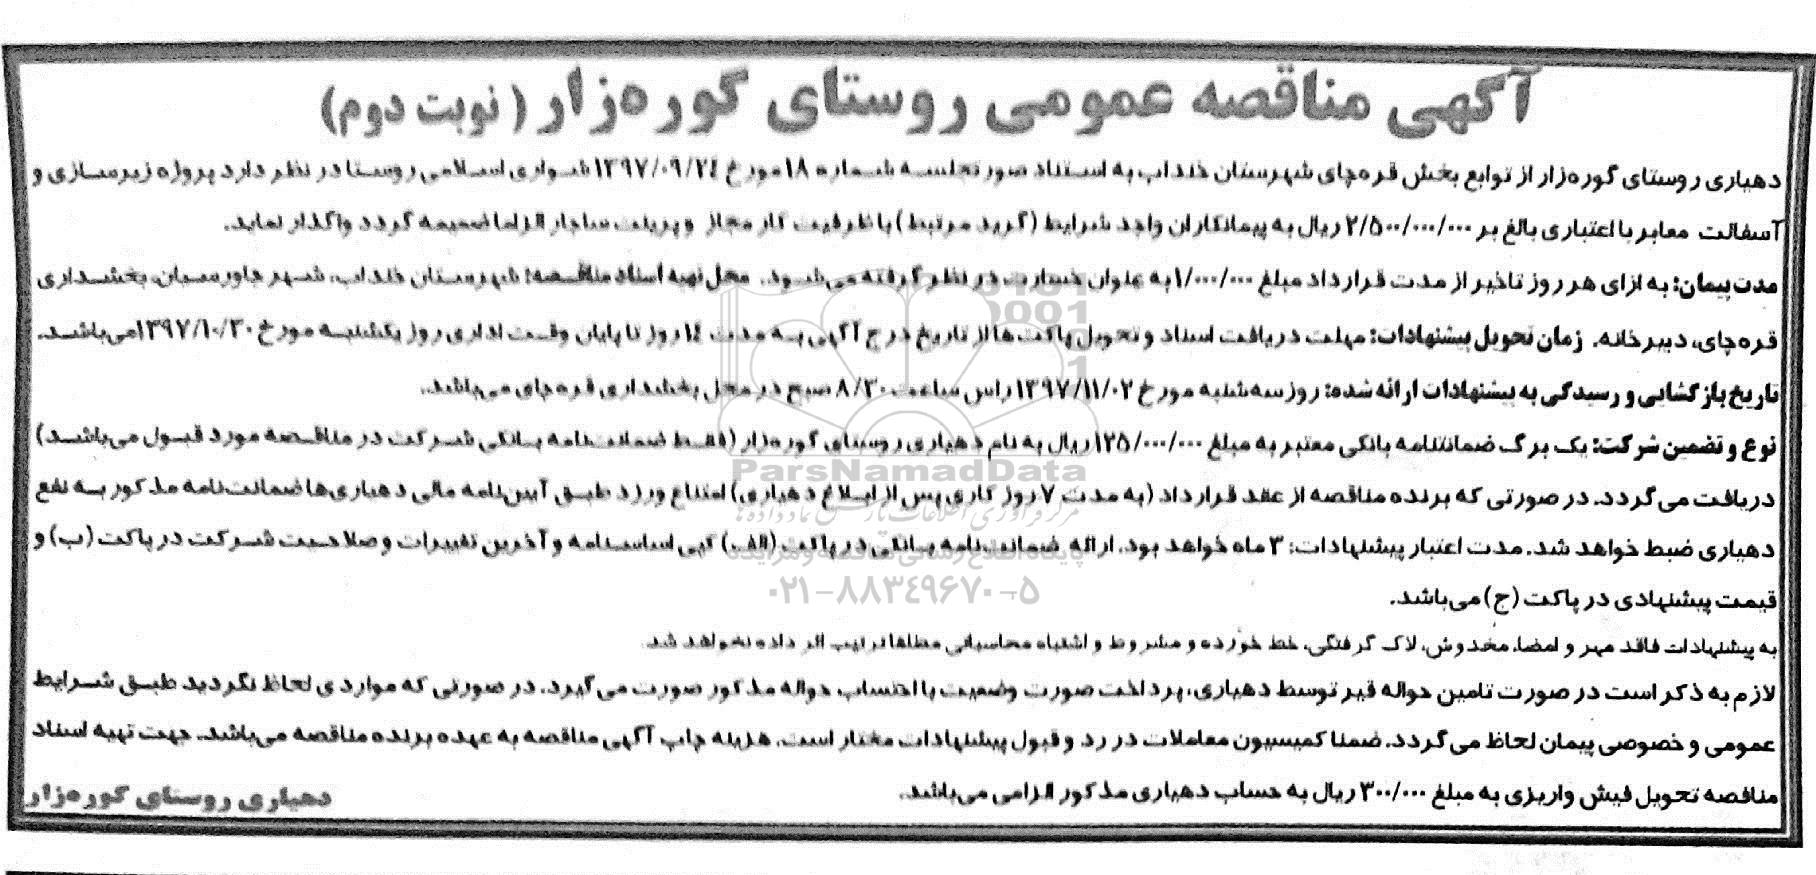 آگهی مناقصه عمومی روستای گوره‌زار ( نوبت دوم)
دهیاری روستای گوره‌زار از توابع بخش قره‌چای شهرستان خنداب به استناد صورتجلسه شماره ۱۸ مورخ ۱۳۹۷/۰۹/۲۴ شورای اسلامی روستا در نظر دارد پروژه زیرسازی و
آسفالت معابر با اعتباری بالغ بر ۲/۵۰۰/۰۰۰/۰۰۰ ریال به پیمانکاران واجد شرایط (گرید مرتبط) با ظرفیت کار مجاز و پرینت ساجار الزاما ضمیمه گردد واگذار نماید.
مدت پیمان: به ازای هر روز تاخیر از مدت قرارداد مبلغ ۱/۰۰۰/۰۰۰ به عنوان خسارت در نظر گرفته می‌شود. محل تهیه اسناد مناقصه: شهرستان خنداب، شهر جاورسیان، بخشداری
قره‌چای، دبیرخانه. زمان تحویل پیشنهادات: مهلت دریافت اسناد و تحویل پاکت‌ها از تاریخ درج آگهی به مدت ۱۴ روز تا پایان وقت اداری روز یکشنبه مورخ ۱۳۹۷/۱۰/۳۰ می‌باشد.
تاریخ بازگشایی و رسیدگی به پیشنهادات ارائه شده: روز سه‌شنبه مورخ ۱۳۹۷/۱۱/۰۲ راس ساعت ۸/۳۰ صبح در محل بخشداری قره‌چای می‌باشد.
نوع و تضمین شرکت: یک برگ ضمانتنامه بانکی معتبر به مبلغ ۱۲۵/۰۰۰/۰۰۰ ریال به نام دهیاری روستای گوره‌زار (فقط ضمانت‌نامه بانکی شرکت در مناقصه مورد قبول می‌باشد)
ParsNamadData
دریافت می‌گردد. در صورتی که برنده مناقصه از عقد قرارداد (به مدت ۷ روز کاری پس از ابلاغ دهیاری) امتناع ورزد طبق آیین‌نامه مالی دهیاری‌ها ضمانت‌نامه مذکور به نفع
مرکز فرآوری اطلاعات پارس نماد داده‌ها
دهیاری ضبط خواهد شد. مدت اعتبار پیشنهادات: ۳ ماه خواهد بود. ارائه ضمانت‌نامه بانکی در پاکت (الف) کپی اساسنامه و آخرین تغییرات و صلاحیت شرکت در پاکت (ب) و
پایگاه اطلاع رسانی مناقصه و مزایده
۰۲۱-۸۸۳۴۹۶۷۰-۵
قیمت پیشنهادی در پاکت (ج) می‌باشد.
به پیشنهادات فاقد مهر و امضا، مخدوش، لاک گرفتگی، خط خورده و مشروط و اشتباه محاسباتی مطلقا ترتیب اثر داده نخواهد شد.
لازم به ذکر است در صورت تامین حواله قیر توسط دهیاری، پرداخت صورت وضعیت با احتساب حواله مذکور صورت می‌گیرد. در صورتی که مواردی لحاظ نگردید طبق شرایط
عمومی و خصوصی پیمان لحاظ می‌گردد. ضمنا کمیسیون معاملات در رد و قبول پیشنهادات مختار است. هزینه چاپ آگهی مناقصه به عهده برنده مناقصه می‌باشد. جهت تهیه اسناد
مناقصه تحویل فیش واریزی به مبلغ ۳۰۰/۰۰۰ ریال به حساب دهیاری مذکور الزامی می‌باشد.
دهیاری روستای گوره‌زار